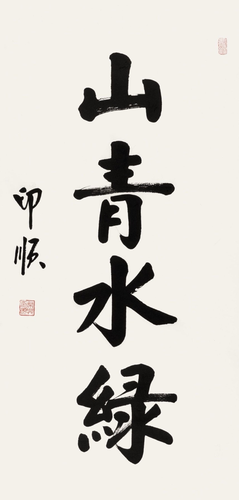 山青水綠
印順